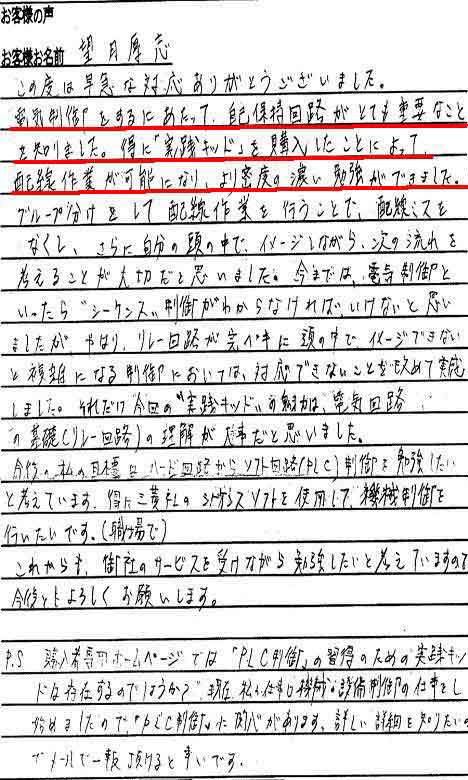 お客様の声
お客様お名前 望月厚志
この度は早急な対応ありがとうございました。
電気制御をするにあたって、自己保持回路がとても重要なこと
を知りました。得に「実践キッド」を購入したことによって、
配線作業が可能になり、より密度の濃い勉強ができました。
グループ分けをして配線作業を行うことで、配線ミスを
なくし、さらに自分の頭の中で、イメージしながら、次の流れを
考えることが大切だと思いました。今までは、電気制御と
いったら"シーケンス"制御がわからなければ、いけないと思い
ましたが、やはり、リレー回路が完ペキに頭の中で、イメージできない
と複雑になる制御においては、対応できないことを改めて実感
しました。それだけ今回の"実践キッド"の魅力は、電気回路
の基礎(リレー回路)の理解が大事だと思いました。
今後の私の目標はハード回路からソフト回路(PLC)制御を勉強したい
と考えています。得に三菱さんのシーケンスソフトを使用して、機械制御を
行いたいです。(職場で)
これからも、御社のサービスを受けながら勉強したいと考えていますので
今後ともよろしくお願いします。
P.S 購入者専用ホームページでは「PLC制御」の習得のための実践キッ
ドは存在するのでしょうか? 現在、私の仕事も機械の設備制御の仕事をし
始めましたので、「PLC制御」に関心があります。詳しい詳細を知りたいの
でメールで一報頂けると幸いです。